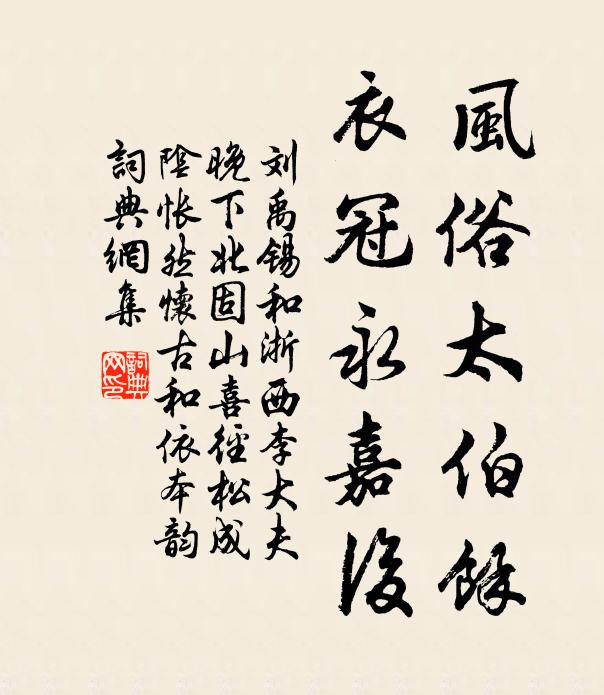 風俗太伯餘
衣冠永嘉後
刘禹锡和浙西李大夫
晚下北固山喜徑松成
陰悵然懷古和依本韵
詞典網集
詞典
网印